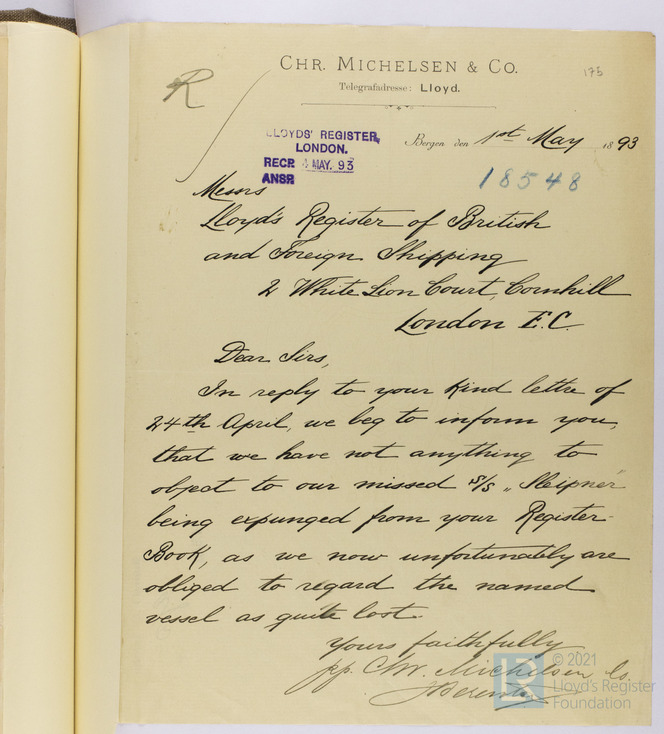 CHR. MICHELSEN & CO.
175
Telegrafadresse: Lloyd.
R
LLOYDS' REGISTER,
LONDON.
RECD. 4 MAY. 93
ANSD
Bergen den 1st May 1893
18548
Messrs
Lloyd's Register of British
and Foreign Shipping
2 White Lion Court, Cornhill
London E.C.
Dear Sirs,
In reply to your kind lettre of
24th April, we beg to inform you,
that we have not anything to
object to our missed s/s „Sleipner"
being expunged from your Register-
Book, as we now unfortunately are
obliged to regard the named
vessel as quite lost.
Yours faithfully
pp. Chr. Michelsen & Co.
© 2021
Lloyd's Register
Foundation